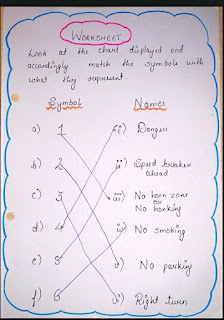 WORKSHEET
Look at the chart displayed and
accordingly match the symbols with
what they represent
Symbol Names
a) 1 i) Danger
b) 2 ii) Speed breaker
ahead
c) 3 iii) No horn zone
or
No honking
d) 4 iv) No smoking
e) 5 v) No parking
f) 6 vi) Right turn